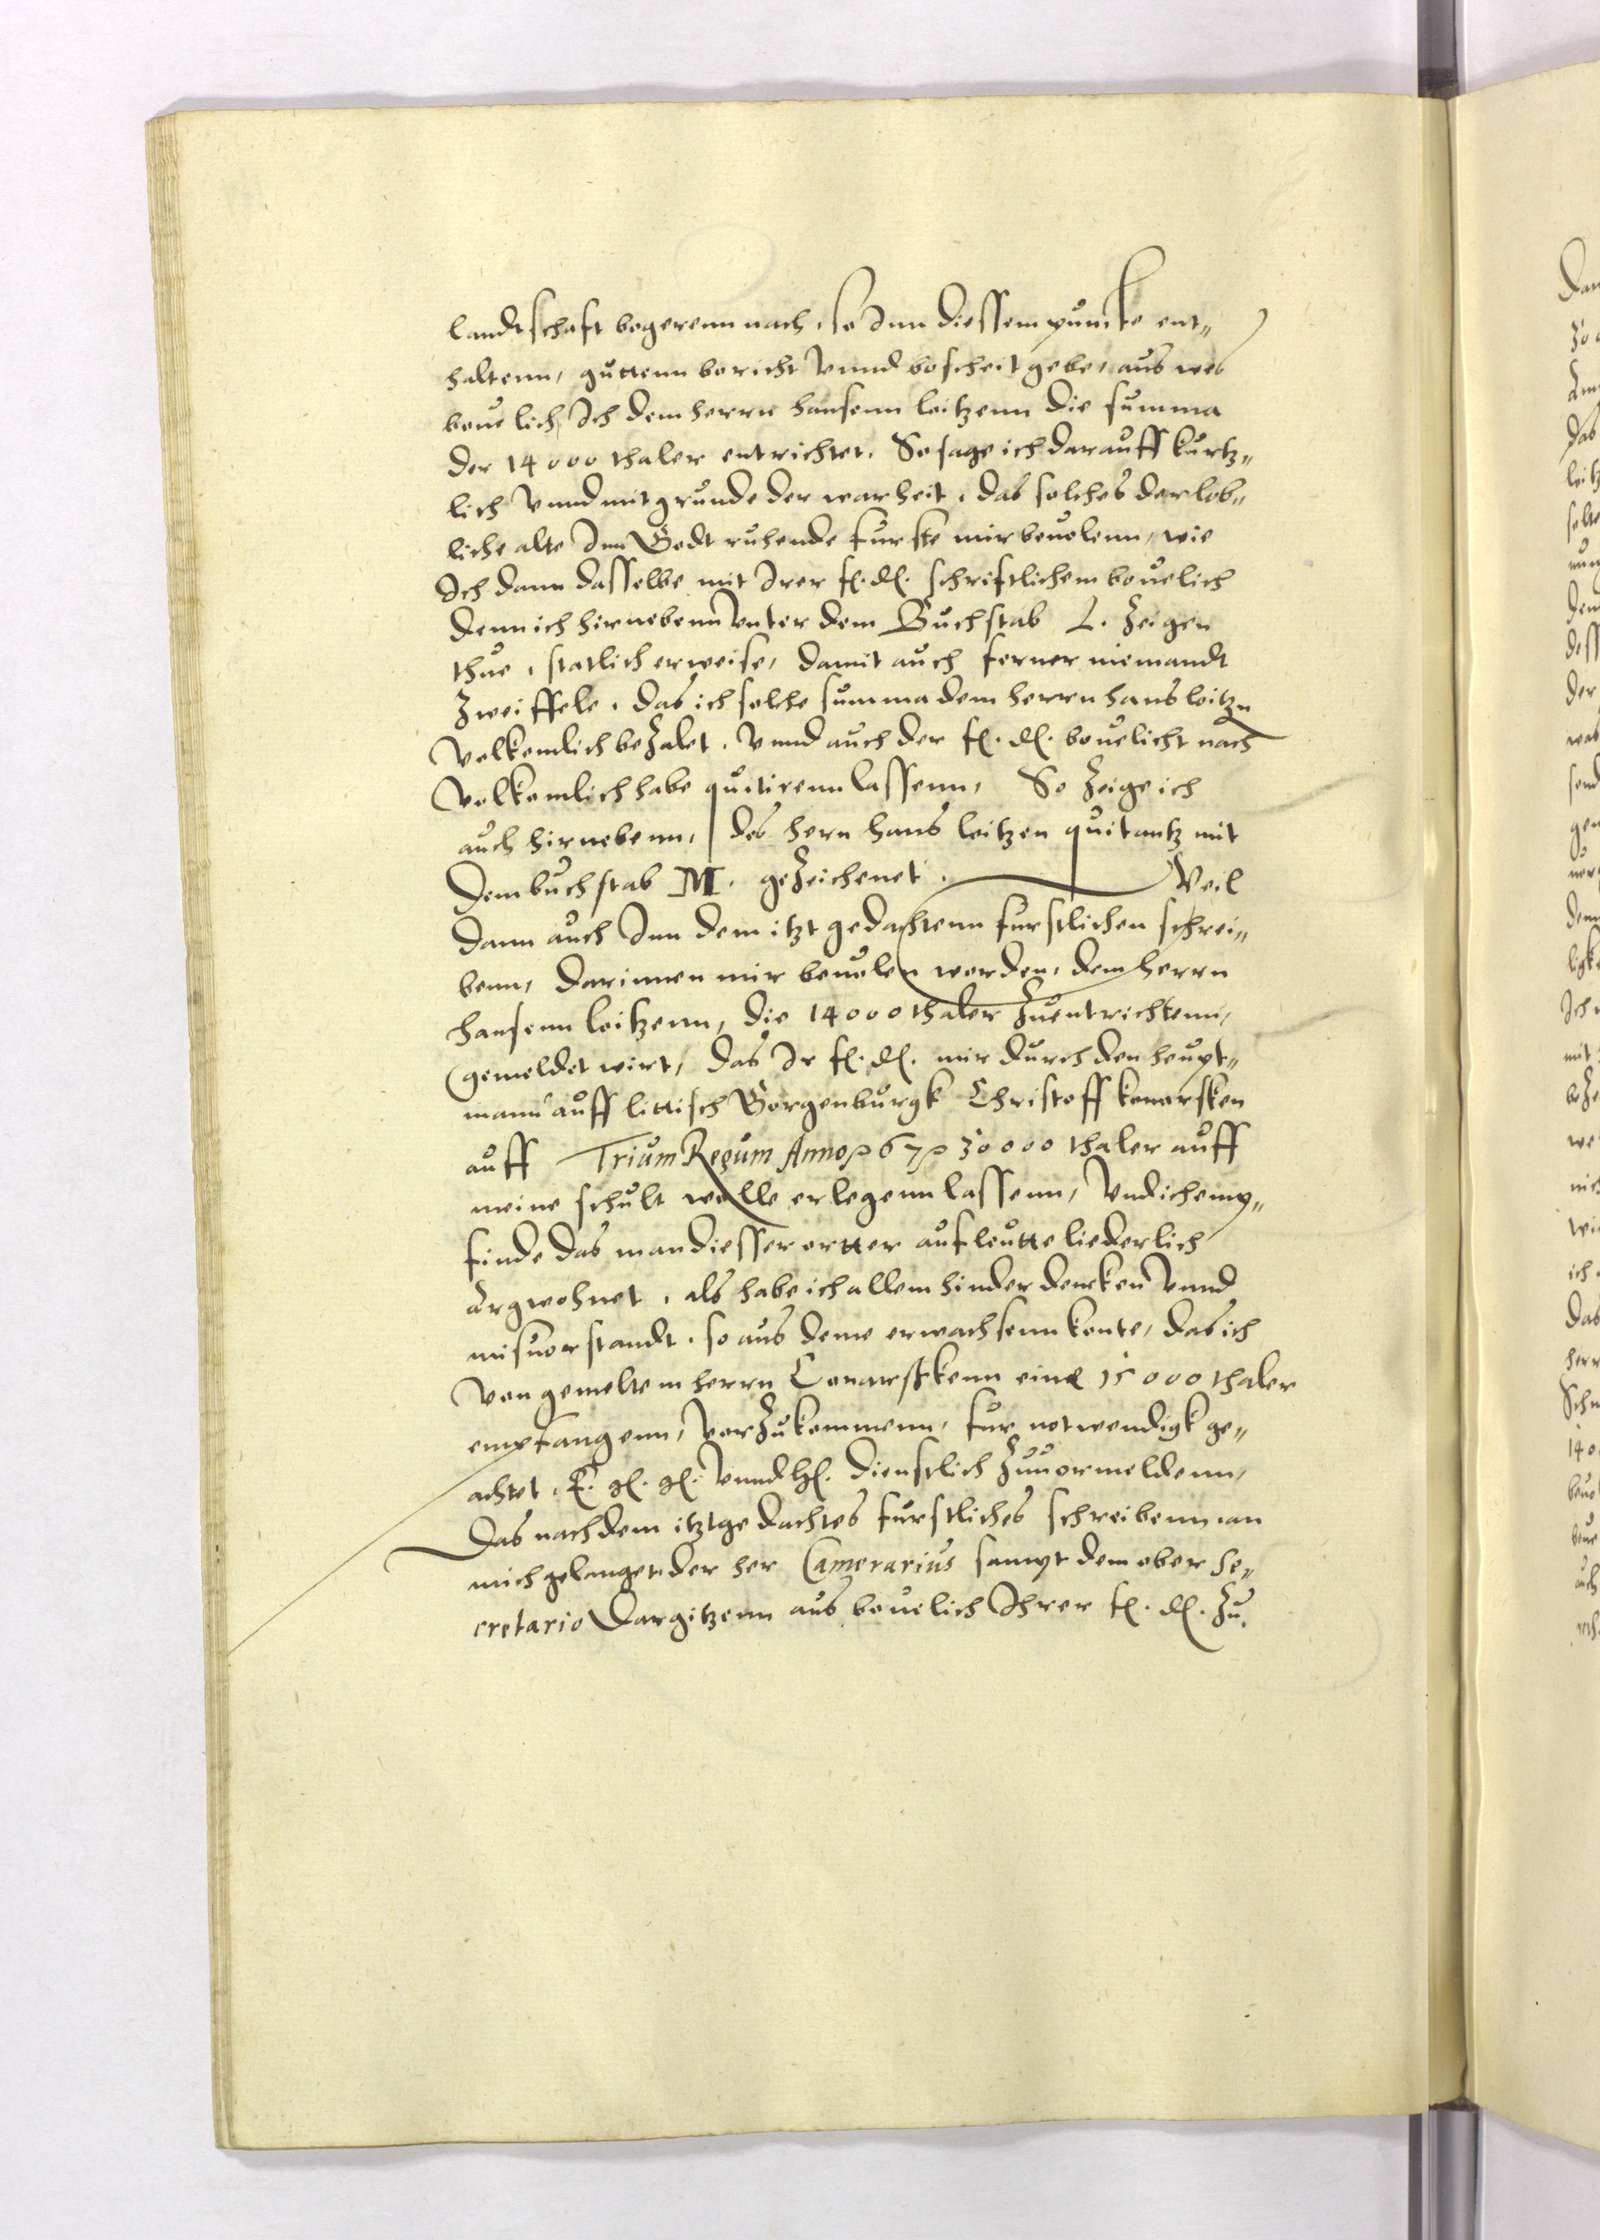 landtschaft begerenn nach, so Inn diessem punckte ent„
haltenn, guttenn bericht vnnd bescheit gebe, aus wes
beuelich Ich dem herrn hansenn leitzenn die summa
der 14000 thaler entrichtet. So sage ich darauff kurtz„
lich vnnd mit grunde der warheit, das solches der lob„
liche alte Inn Godt ruhende furste mir beuolenn, wie
Ich dann dasselbe mit Irer fl. dl. schriftlichem beuelich
denn ich hirnebenn vnter dem Buchstab L. zeigen
thue, statlich erweise, damit auch ferner niemandt
zweiffele, das ich solche summa dem herrn hans leitzn
volkemlich bezalet, vnnd auch der fl. dl. beuelicht nach
volkomlich habe quitirenn lassenn, So zeige ich
auch hirnebenn, des hern hans leitzen quitantz mit
dem buchstab M. gezeichenet. Veil
dann auch Inn dem itzt gedachtenn furstlichen schrei„
benn, darinnen mir beuolen worden, dem herrn
hansenn leitzenn, die 14000 thaler zuentrichtenn,
gemeldet wirt, das Ir fl. dl. mir durch den heupt„
mann auff littisch Gorgenburgk Christoff konarsken
auff Trium Regum Anno 67 30000 thaler auff
meine schult wolle erlegenn lassenn, vnd ich emp„
finde das man diesser ortter auf leutte liederlich
argwohnet, als habe ich allem hinderdencken vnnd
misuorstandt, so aus deme erwachsenn konte, das ich
von gemeltem herrn Conarskkenn eine 15000 thaler
empfangenn, vorzukommenn, fur notwendigk ge„
achtet, E. gl. gl. vnnd hl. dienstlich zuuormeldenn,
Das nachdem itztgedachtes furstliches schreibenn an
mich gelanget, der her Camerarius sampt dem ober Se„
cretario Dargitzenn aus beuelich Ihrer fl. dl. zu